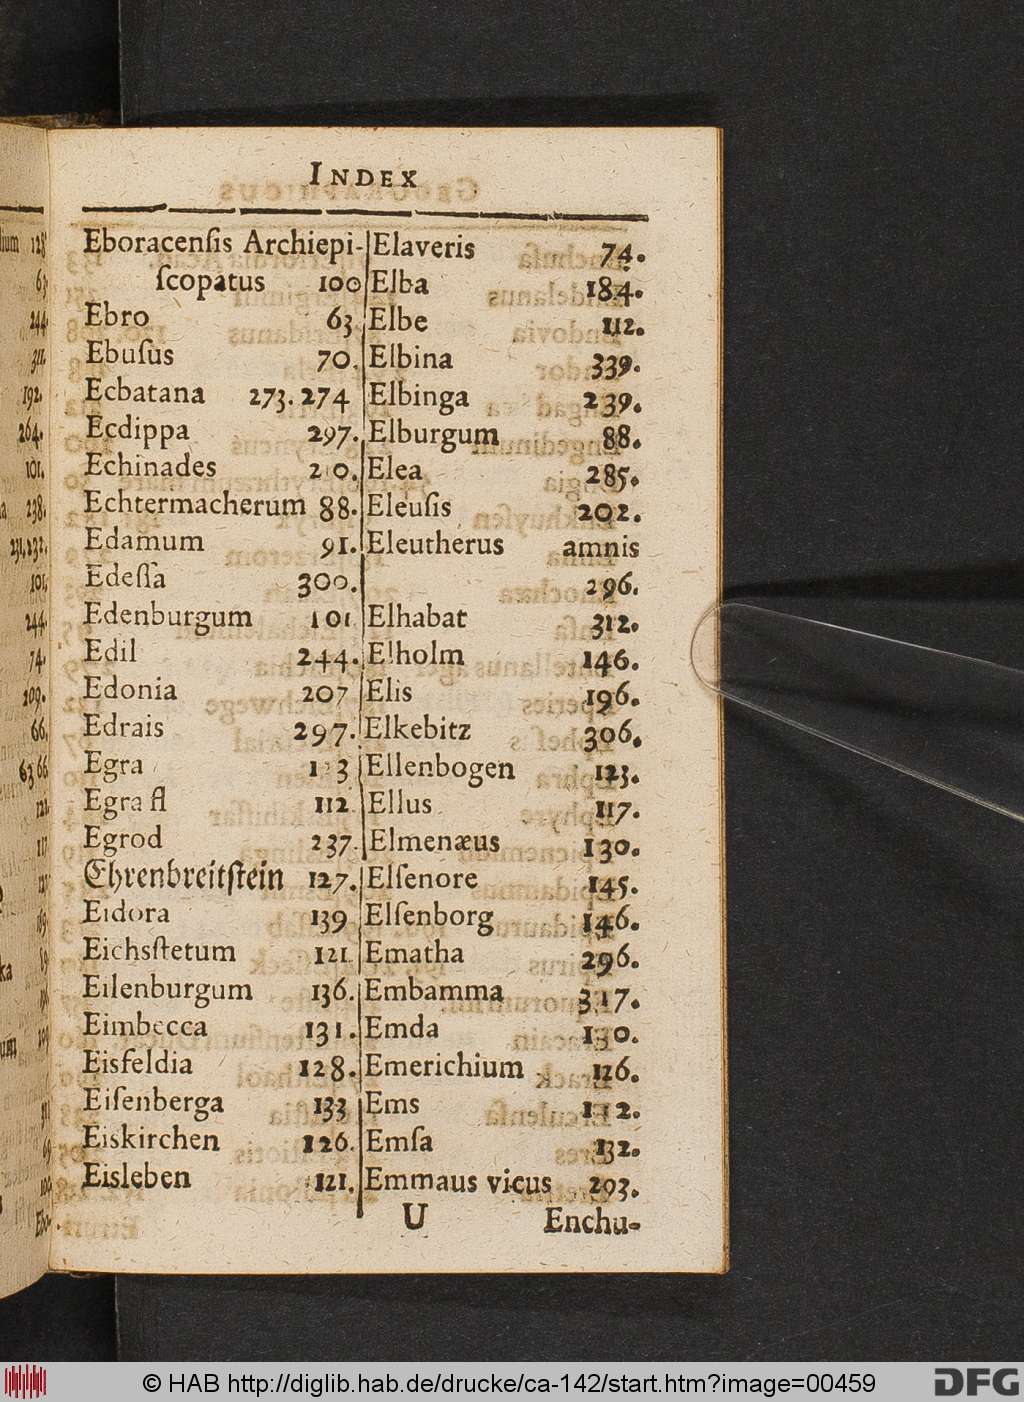 INDEX
Eboracensis Archiepi-
scopatus 100
Ebro 63
Ebusus 70.
Ecbatana 273. 274
Ecdippa 297.
Echinades 210.
Echtermacherum 88.
Edamum 91.
Edessa 300.
Edenburgum 101
Edil 244.
Edonia 207
Edrais 297.
Egra 123
Egra fl 112
Egrod 237.
Ehrenbreitstein 127.
Eidora 139
Eichsstetum 121
Eilenburgum 136.
Eimbecca 131.
Eisfeldia 128.
Eisenberga 133
Eiskirchen 126.
Eisleben 121.
Elaveris 74.
Elba 184.
Elbe 112.
Elbina 339.
Elbinga 239.
Elburgum 88.
Elea 285.
Eleusis 202.
Eleutherus amnis
296.
Elhabat 312.
Elholm 146.
Elis 196.
Elkebitz 306.
Ellenbogen 123.
Ellus 117.
Elmenæus 130.
Elsenore 145.
Elsenborg 146.
Ematha 296.
Embamma 317.
Emda 130.
Emerichium 126.
Ems 112.
Emsa 132.
Emmaus vicus 293.
U Enchu-
© HAB http://diglib.hab.de/drucke/ca-142/start.htm?image=00459
DFG